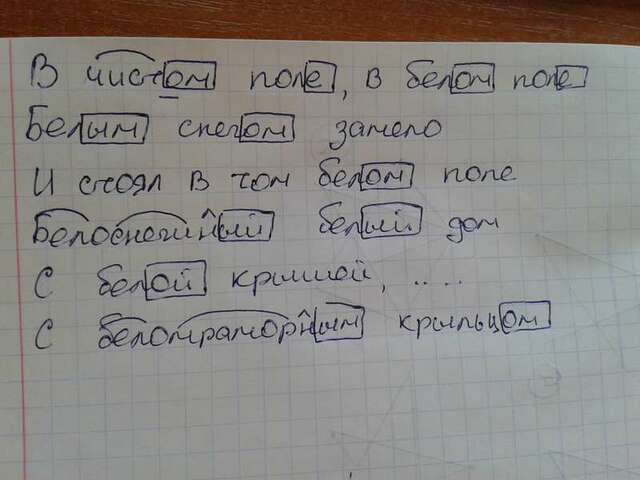 В чистом поле, в белом поле
Белым снегом замело
И стоял в том белом поле
Белоснежный белый дом
С белой крышой, ....
С беломраморным крыльцом